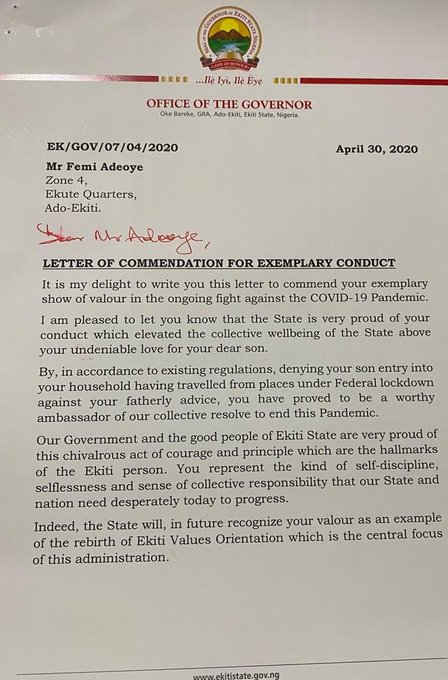 SEAL OF THE GOVERNOR OF EKITI STATE NIGERIA
LAND OF HONOUR
...Ilẹ̀ Iyì, Ilẹ̀ Ẹ̀yẹ
OFFICE OF THE GOVERNOR
Oke Bareke, GRA, Ado-Ekiti, Ekiti State, Nigeria.
EK/GOV/07/04/2020 April 30, 2020
Mr Femi Adeoye
Zone 4,
Ekute Quarters,
Ado-Ekiti.
Dear Mr. Adeoye,
LETTER OF COMMENDATION FOR EXEMPLARY CONDUCT
It is my delight to write you this letter to commend your exemplary
show of valour in the ongoing fight against the COVID-19 Pandemic.
I am pleased to let you know that the State is very proud of your
conduct which elevated the collective wellbeing of the State above
your undeniable love for your dear son.
By, in accordance to existing regulations, denying your son entry into
your household having travelled from places under Federal lockdown
against your fatherly advice, you have proved to be a worthy
ambassador of our collective resolve to end this Pandemic.
Our Government and the good people of Ekiti State are very proud of
this chivalrous act of courage and principle which are the hallmarks
of the Ekiti person. You represent the kind of self-discipline,
selflessness and sense of collective responsibility that our State and
nation need desperately today to progress.
Indeed, the State will, in future recognize your valour as an example
of the rebirth of Ekiti Values Orientation which is the central focus
of this administration.
www.ekitistate.gov.ng